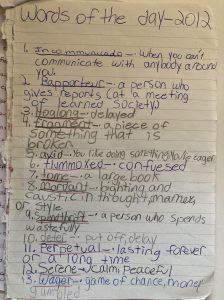 Words of the day-2012
1. Incommunicado - When you can't
communicate with anybody around
you.
2. Rapporteur - a person who
gives reports (at a meeting
of learned society)
3. - delayed
4. Fragment - a piece of
something that is
broken
5. avid - You like doing something/You're eager
6. flummoxed - confuesed
7. Tome - a large book
8. Mordant - bighting and
caustic in thought, manner,
or Stile
9. Spendthrift - a person who spends
wastefully
10. defer - put off, delay
11. Perpetual - lasting forever
or a long time
12. Serene - Calm, Peaceful
13. wager - game of chance, money
gambled